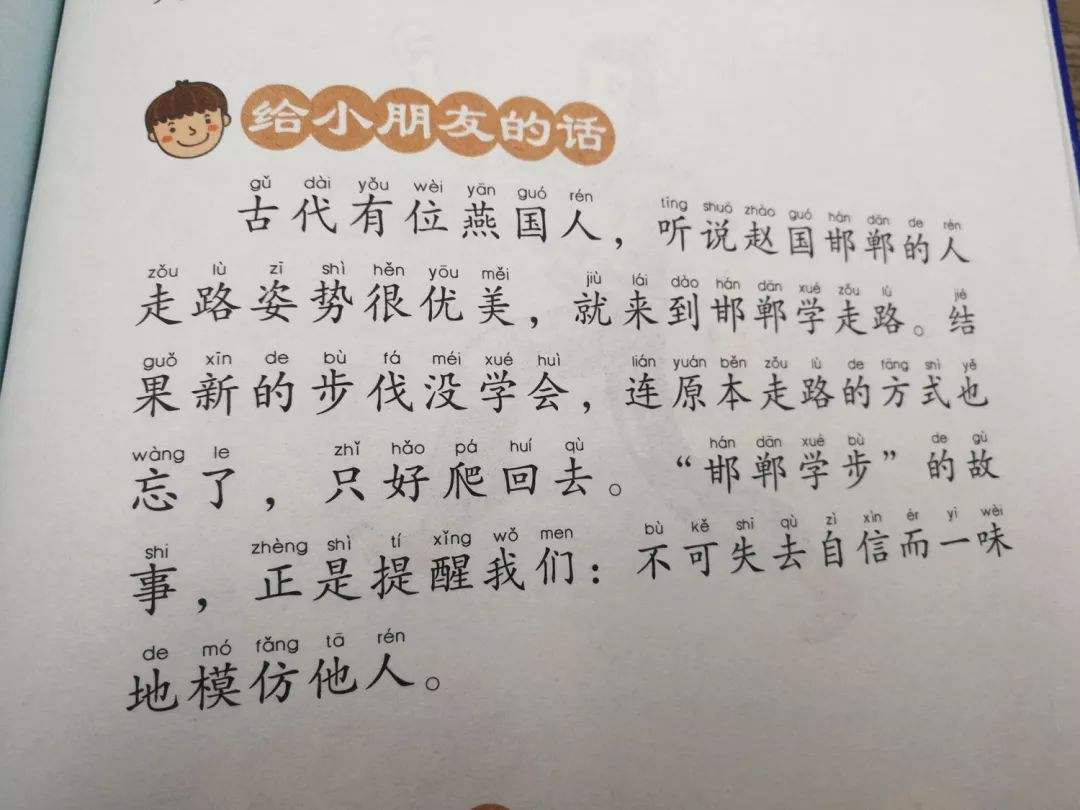 给小朋友的话
gǔ dài yǒu wèi yān guó rén tīng shuō zhào guó hán dān de rén
古代有位燕国人，听说赵国邯郸的人
zǒu lù zī shì hěn yōu měi jiù lái dào hán dān xué zǒu lù jié
走路姿势很优美，就来到邯郸学走路。结
guǒ xīn de bù fá méi xué huì lián yuán běn zǒu lù de fāng shì yě
果新的步伐没学会，连原本走路的方式也
wàng le zhǐ hǎo pá huí qù hán dān xué bù de gù
忘了，只好爬回去。“邯郸学步”的故
shi zhèng shì tí xǐng wǒ men bù kě shī qù zì xìn ér yì wèi
事，正是提醒我们：不可失去自信而一味
de mó fǎng tā rén
地模仿他人。